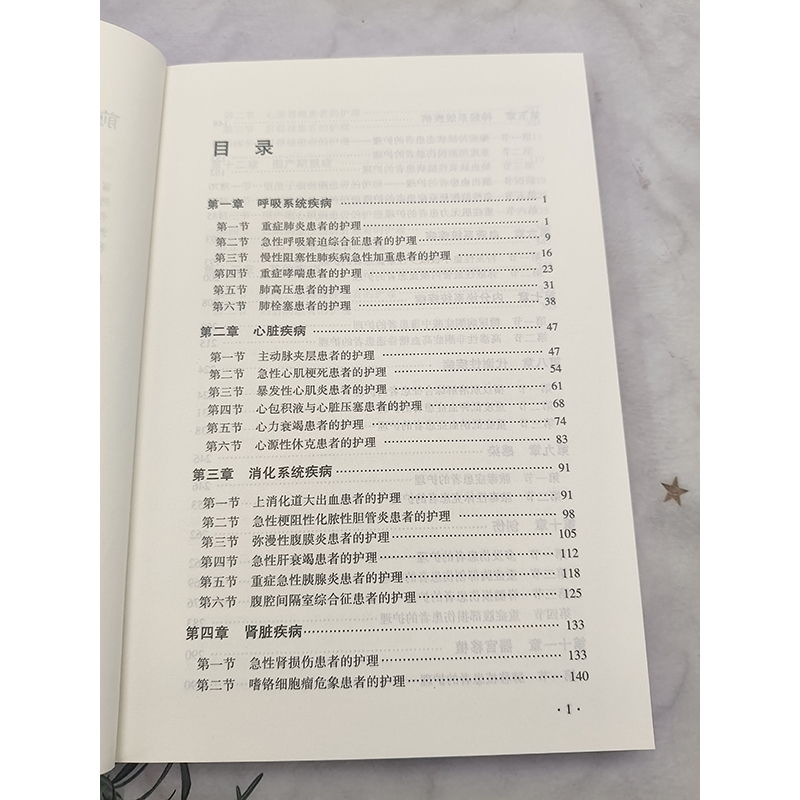 目 录
第一章 呼吸系统疾病 1
第一节 重症肺炎患者的护理 1
第二节 急性呼吸窘迫综合征患者的护理 9
第三节 慢性阻塞性肺疾病急性加重患者的护理 16
第四节 重症哮喘患者的护理 23
第五节 肺高压患者的护理 31
第六节 肺栓塞患者的护理 38
第二章 心脏疾病 47
第一节 主动脉夹层患者的护理 47
第二节 急性心肌梗死患者的护理 54
第三节 暴发性心肌炎患者的护理 61
第四节 心包积液与心脏压塞患者的护理 68
第五节 心力衰竭患者的护理 74
第六节 心源性休克患者的护理 83
第三章 消化系统疾病 91
第一节 上消化道大出血患者的护理 91
第二节 急性梗阻性化脓性胆管炎患者的护理 98
第三节 弥漫性腹膜炎患者的护理 105
第四节 急性肝衰竭患者的护理 112
第五节 重症急性胰腺炎患者的护理 118
第六节 腹腔间隔室综合征患者的护理 125
第四章 肾脏疾病 133
第一节 急性肾损伤患者的护理 133
第二节 嗜铬细胞瘤危象患者的护理 140
· 1 ·